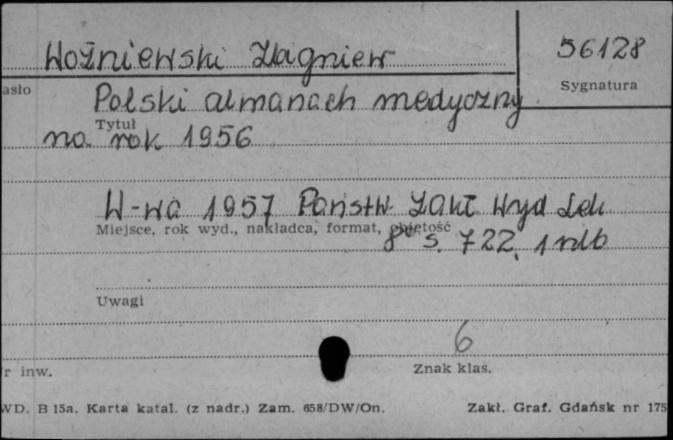 Woźniewski Zbigniew
56128
asło
Sygnatura
Polski almanach medyczny
Tytuł
na rok 1956
W-wa 1957 Państw Zakł Wyd Lek
Miejsce, rok wyd., nakładca, format, objętość
8° s. 722, 1 nlb
Uwagi
6
r inw.
Znak klas.
WD. B 15a. Karta katal. (z nadr.) Zam. 658/DW/On.
Zakł. Graf. Gdańsk nr 175